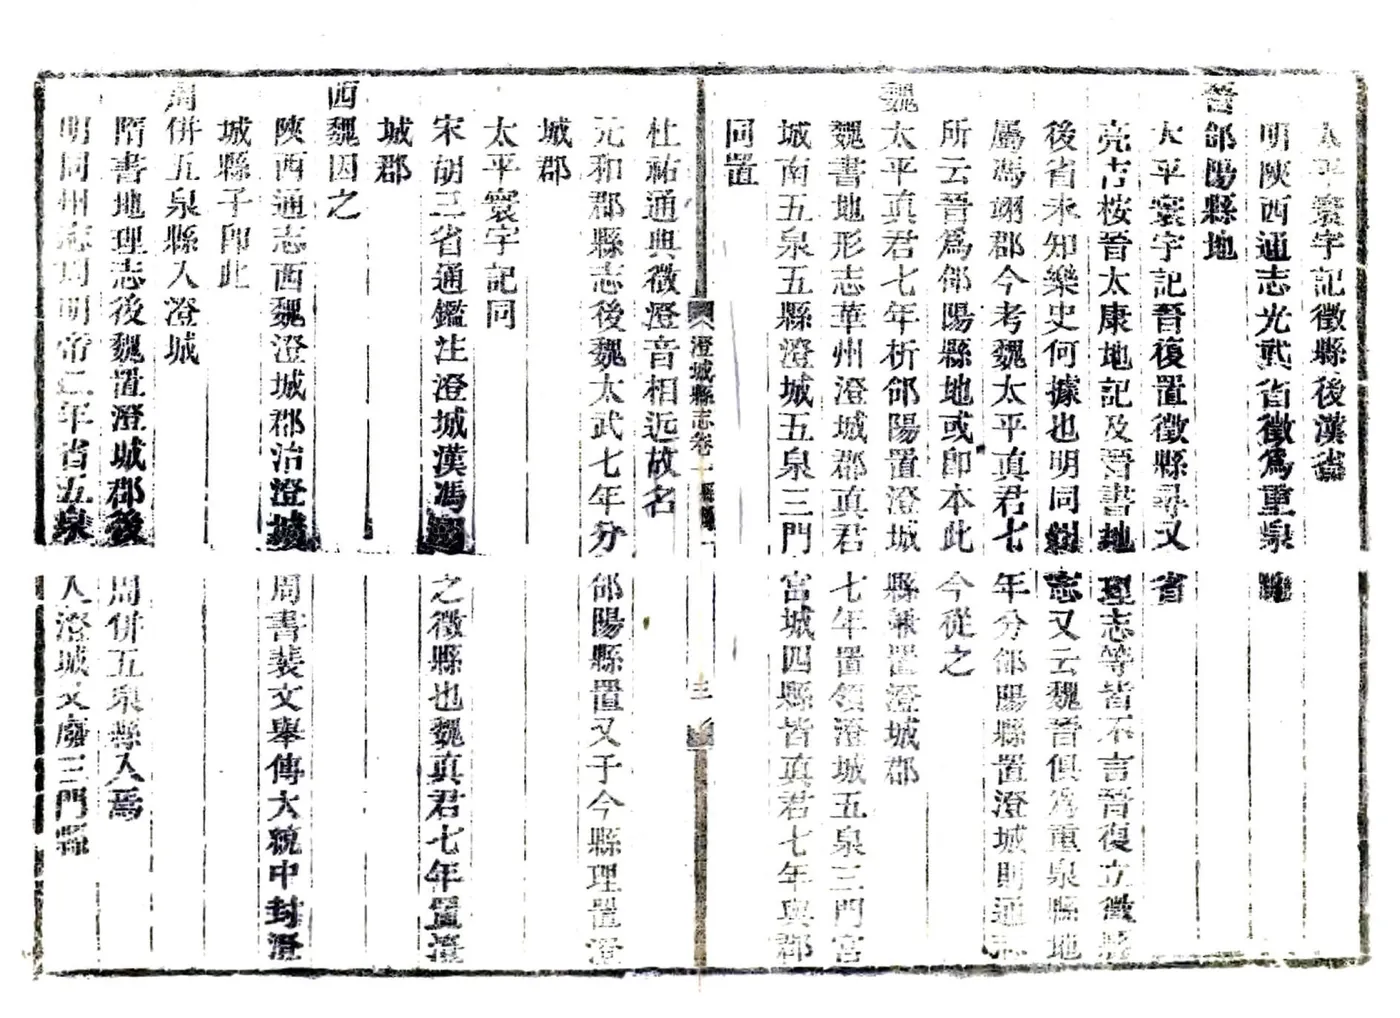 太平寰宇記徵縣後漢省
明陝西通志光武省徵為重泉
晉郃陽縣地
太平寰宇記晉復置徵縣尋又省
亮吉桉晉太康地記及晉書地理志等皆不言晉復立徵縣
後省未知樂史何據也明同州志又云魏晉俱為重泉縣地
屬馮翊郡今考魏太平真君七年分郃陽縣置澄城則通志
所云晉為郃陽縣地或卽本此今從之
魏太平真君七年析郃陽置澄城縣兼置澄城郡
魏書地形志華州澄城郡真君七年置領澄城五泉三門宮
城南五泉五縣澄城五泉三門宮城四縣皆真君七年與郡
同置
澄城縣志卷一 三
杜祐通典徵澄音相近故名
元和郡縣志後魏太武七年分郃陽縣置又于今縣理置澄
城郡
太平寰宇記同
宋胡三省通鑑注澄城漢馮翊之徵縣也魏真君七年置澄
城郡
西魏因之
陝西通志西魏澄城郡治澄城周書裴文舉傳大統中封澄
城縣子卽此
周併五泉縣入澄城
隋書地理志後魏置澄城郡後周併五泉縣入焉
明同州志周明帝二年省五泉入澄城又廢三門縣